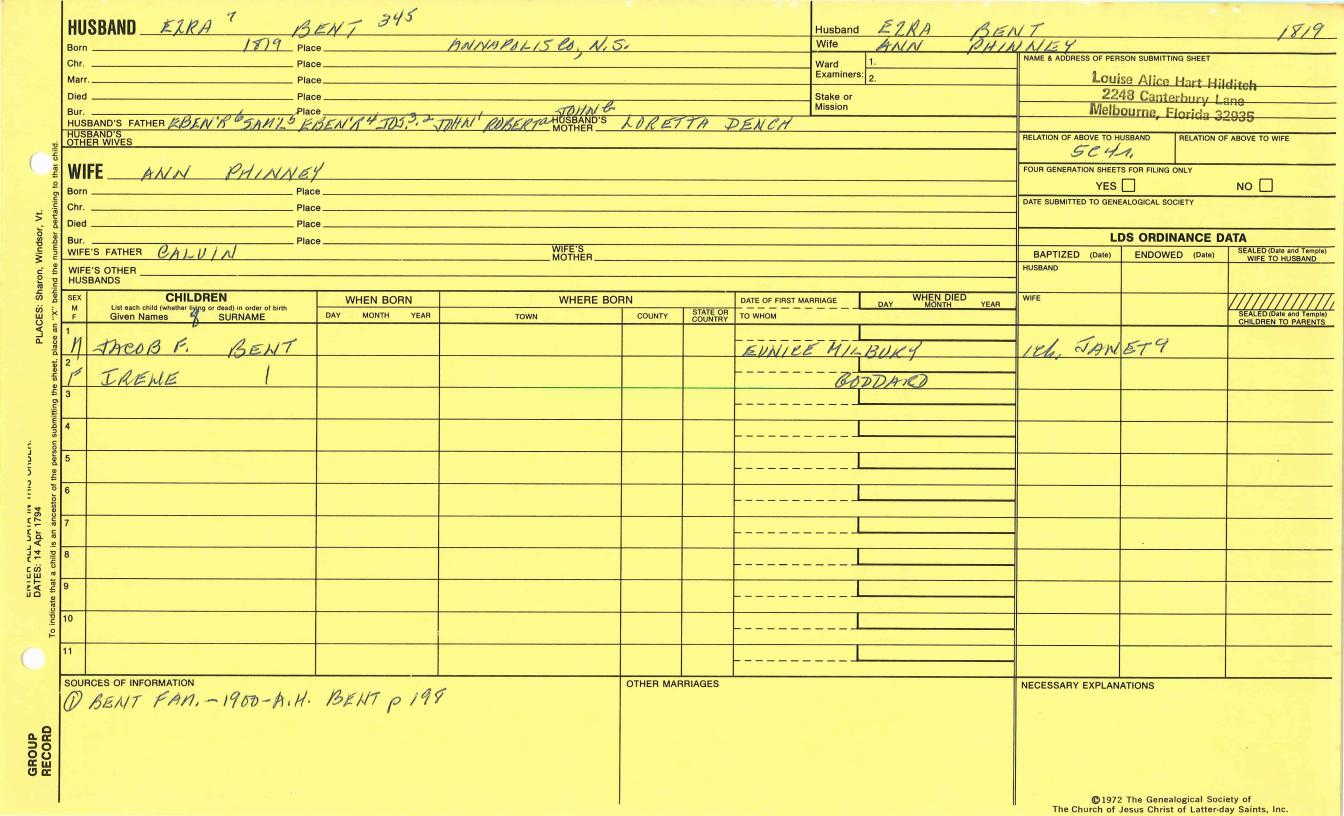 HUSBAND EZRA 7 BENT 345
Born 1819 Place ANNAPOLIS CO, N.S.
Chr. Place
Marr. Place
Died Place
Bur. Place
HUSBAND'S FATHER EBEN'R 6 SAM'L 5 EBEN'R 4 JOS. 3, 2 JOHN 1 ROBERT a JOHN b HUSBAND'S MOTHER LORETTA DENCH
HUSBAND'S OTHER WIVES
WIFE ANN PHINNEY
Born Place
Chr. Place
Died Place
Bur. Place
WIFE'S FATHER CALVIN WIFE'S MOTHER
WIFE'S OTHER HUSBANDS
Husband EZRA BENT 1819
Wife ANN PHINNEY
Ward Examiners: 1.
2.
Stake or Mission
NAME & ADDRESS OF PERSON SUBMITTING SHEET
Louise Alice Hart Hilditch
2248 Canterbury Lane
Melbourne, Florida 32935
RELATION OF ABOVE TO HUSBAND RELATION OF ABOVE TO WIFE
5C4r.
FOUR GENERATION SHEETS FOR FILING ONLY
YES NO
DATE SUBMITTED TO GENEALOGICAL SOCIETY
LDS ORDINANCE DATA
BAPTIZED (Date) ENDOWED (Date) SEALED (Date and Temple) WIFE TO HUSBAND
HUSBAND
WIFE
SEALED (Date and Temple) CHILDREN TO PARENTS
SEX M F
CHILDREN
List each child (whether living or dead) in order of birth
Given Names 8 SURNAME
WHEN BORN
DAY MONTH YEAR
WHERE BORN
TOWN COUNTY STATE OR COUNTRY
DATE OF FIRST MARRIAGE
TO WHOM
WHEN DIED
DAY MONTH YEAR
1
M JACOB F. BENT EUNICE MILBURY 1ch. JANET 9
2
F IRENE GODDARD
3
4
5
6
7
8
9
10
11
SOURCES OF INFORMATION
① BENT FAM. - 1900 - A.H. BENT p 198
OTHER MARRIAGES
NECESSARY EXPLANATIONS
©1972 The Genealogical Society of
The Church of Jesus Christ of Latter-day Saints, Inc.
PLACES: Sharon, Windsor, Vt.
To indicate that a child is an ancestor of the person submitting the sheet, place an "X" behind the number pertaining to that child.
ENTER ALL DATA IN THIS ORDER:
DATES: 14 Apr 1794
GROUP
RECORD